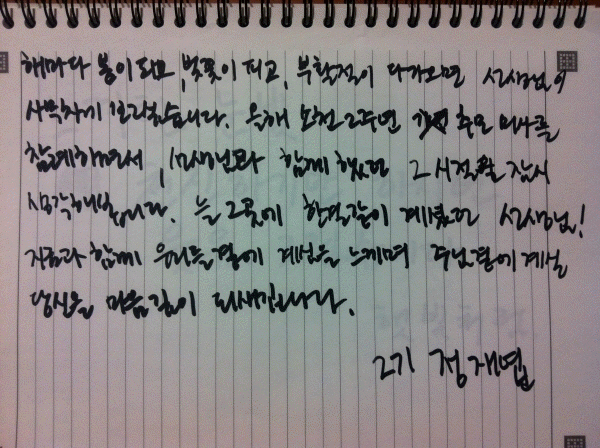 해마다 봄이 되고, 벚꽃이 피고, 부활절이 다가오면 선생님이
사무치게 그리웠습니다. 올해 소천 2주년 추모 미사를
참례하면서, 선생님과 함께 했던 그 시절을 잠시
생각해봅니다. 늘 그곳에 한결같이 계셨던 선생님!
지금과 함께 우리들 곁에 계심을 느끼며 주님 곁에 계실
당신을 마음 깊이 되새깁니다.
2기 정재엽